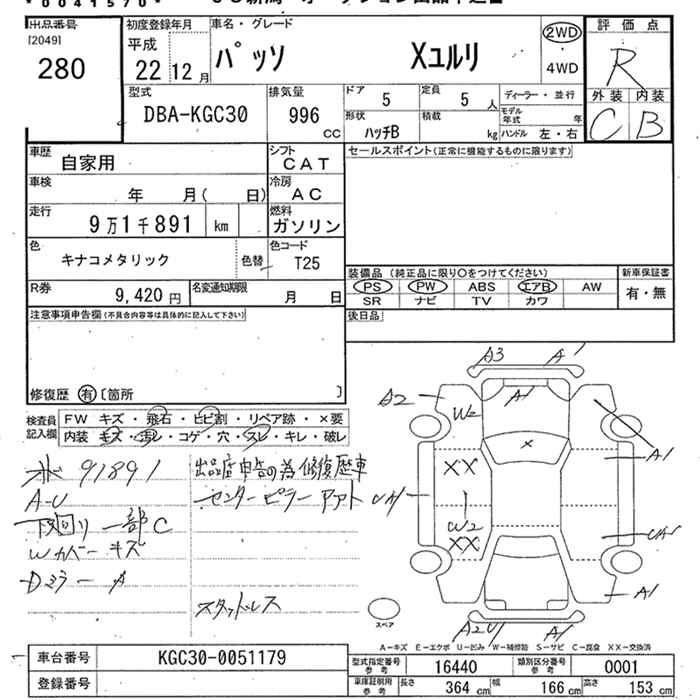 *0041570*
出品番号
[2049]
280
初度登録年月
平成
22 12 月
車名・グレード
パッソ Xユルリ
2WD
4WD
評価点
R
外装 内装
C B
型式
DBA-KGC30
排気量
996
cc
ドア
5
定員
5 人
ディーラー・並行
モデル年式 年
形状
ハッチB
積載
kg
ハンドル 左・右
車歴
自家用
シフト
CAT
車検
年 月( 日)
冷房
AC
走行
9万1千891 km
燃料
ガソリン
色
キナコメタリック
色替
色コード
T25
R券
9,420 円
名変通知期限
月 日
セールスポイント(正常に機能するものに限ります)
装備品(純正品に限り○をつけてください)
新車保証書
PS PW ABS エアB AW
SR ナビ TV カワ
有・無
後日品
注意事項申告欄(不具合内容等は具体的に記入して下さい)
修復歴 有 〔箇所 〕
検査員記入欄
FW キズ・飛石・ヒビ割・リペア跡・×要
内装 キズ・汚レ・コゲ・穴・スレ・キレ・破レ
91891
A-U
下回り 一部C
Wカバー キズ
Dミラー A
出品店申告の為修復歴車
センターピラー アウト
スタッドレス
A3 A1
A2
W2
A1
×
A1
XX
UA1
W2
XX
UA1
A1
A2U1 A1
スペア
A-キズ E-エクボ U-凹み W-補修跡 S-サビ C-腐食 XX-交換済
車台番号
KGC30-0051179
登録番号
型式指定番号 参考
16440
類別区分番号 参考
0001
車庫証明用 参考
長さ 364 cm
幅 166 cm
高さ 153 cm